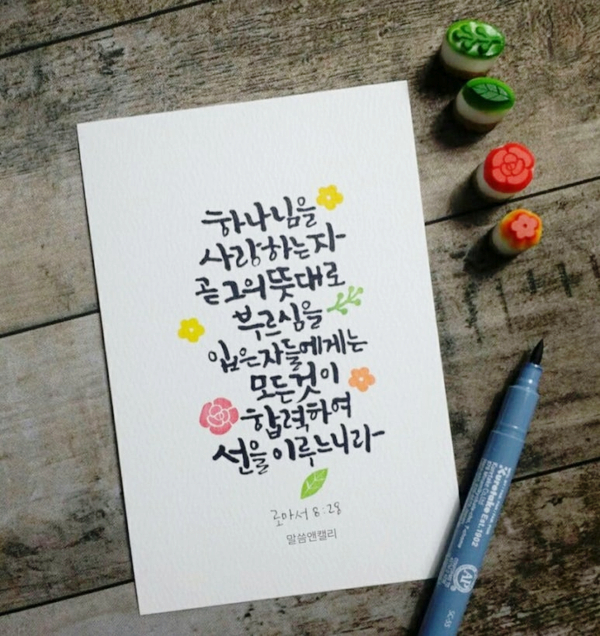 하나님을
사랑하는자
곧 그의 뜻대로
부르심을
입은자들에게는
모든것이
합력하여
선을 이루느니라
로마서 8:28
말씀앤캘리
Kuretake EST. 1902
AP